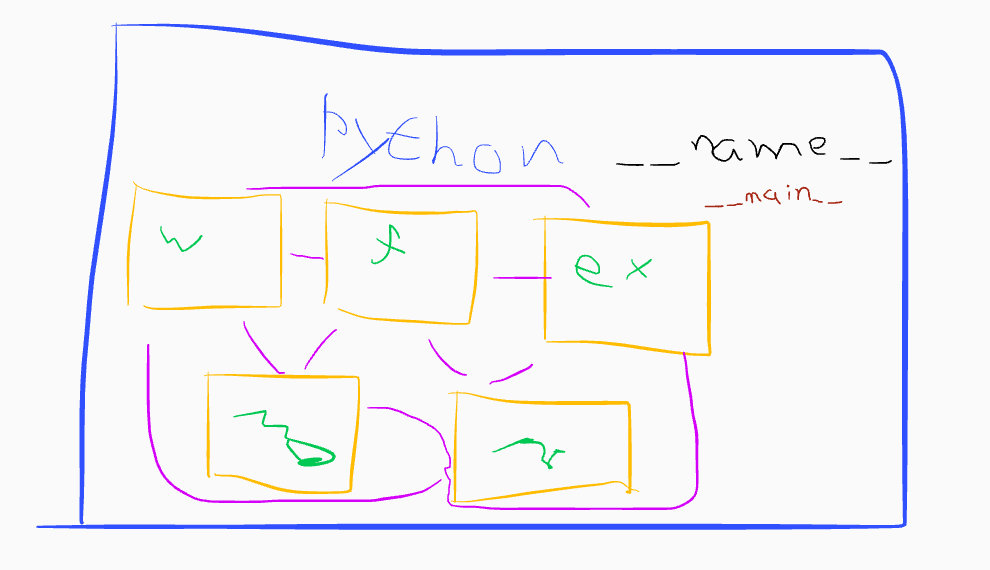 python
__name__
__main__
w
f
ex